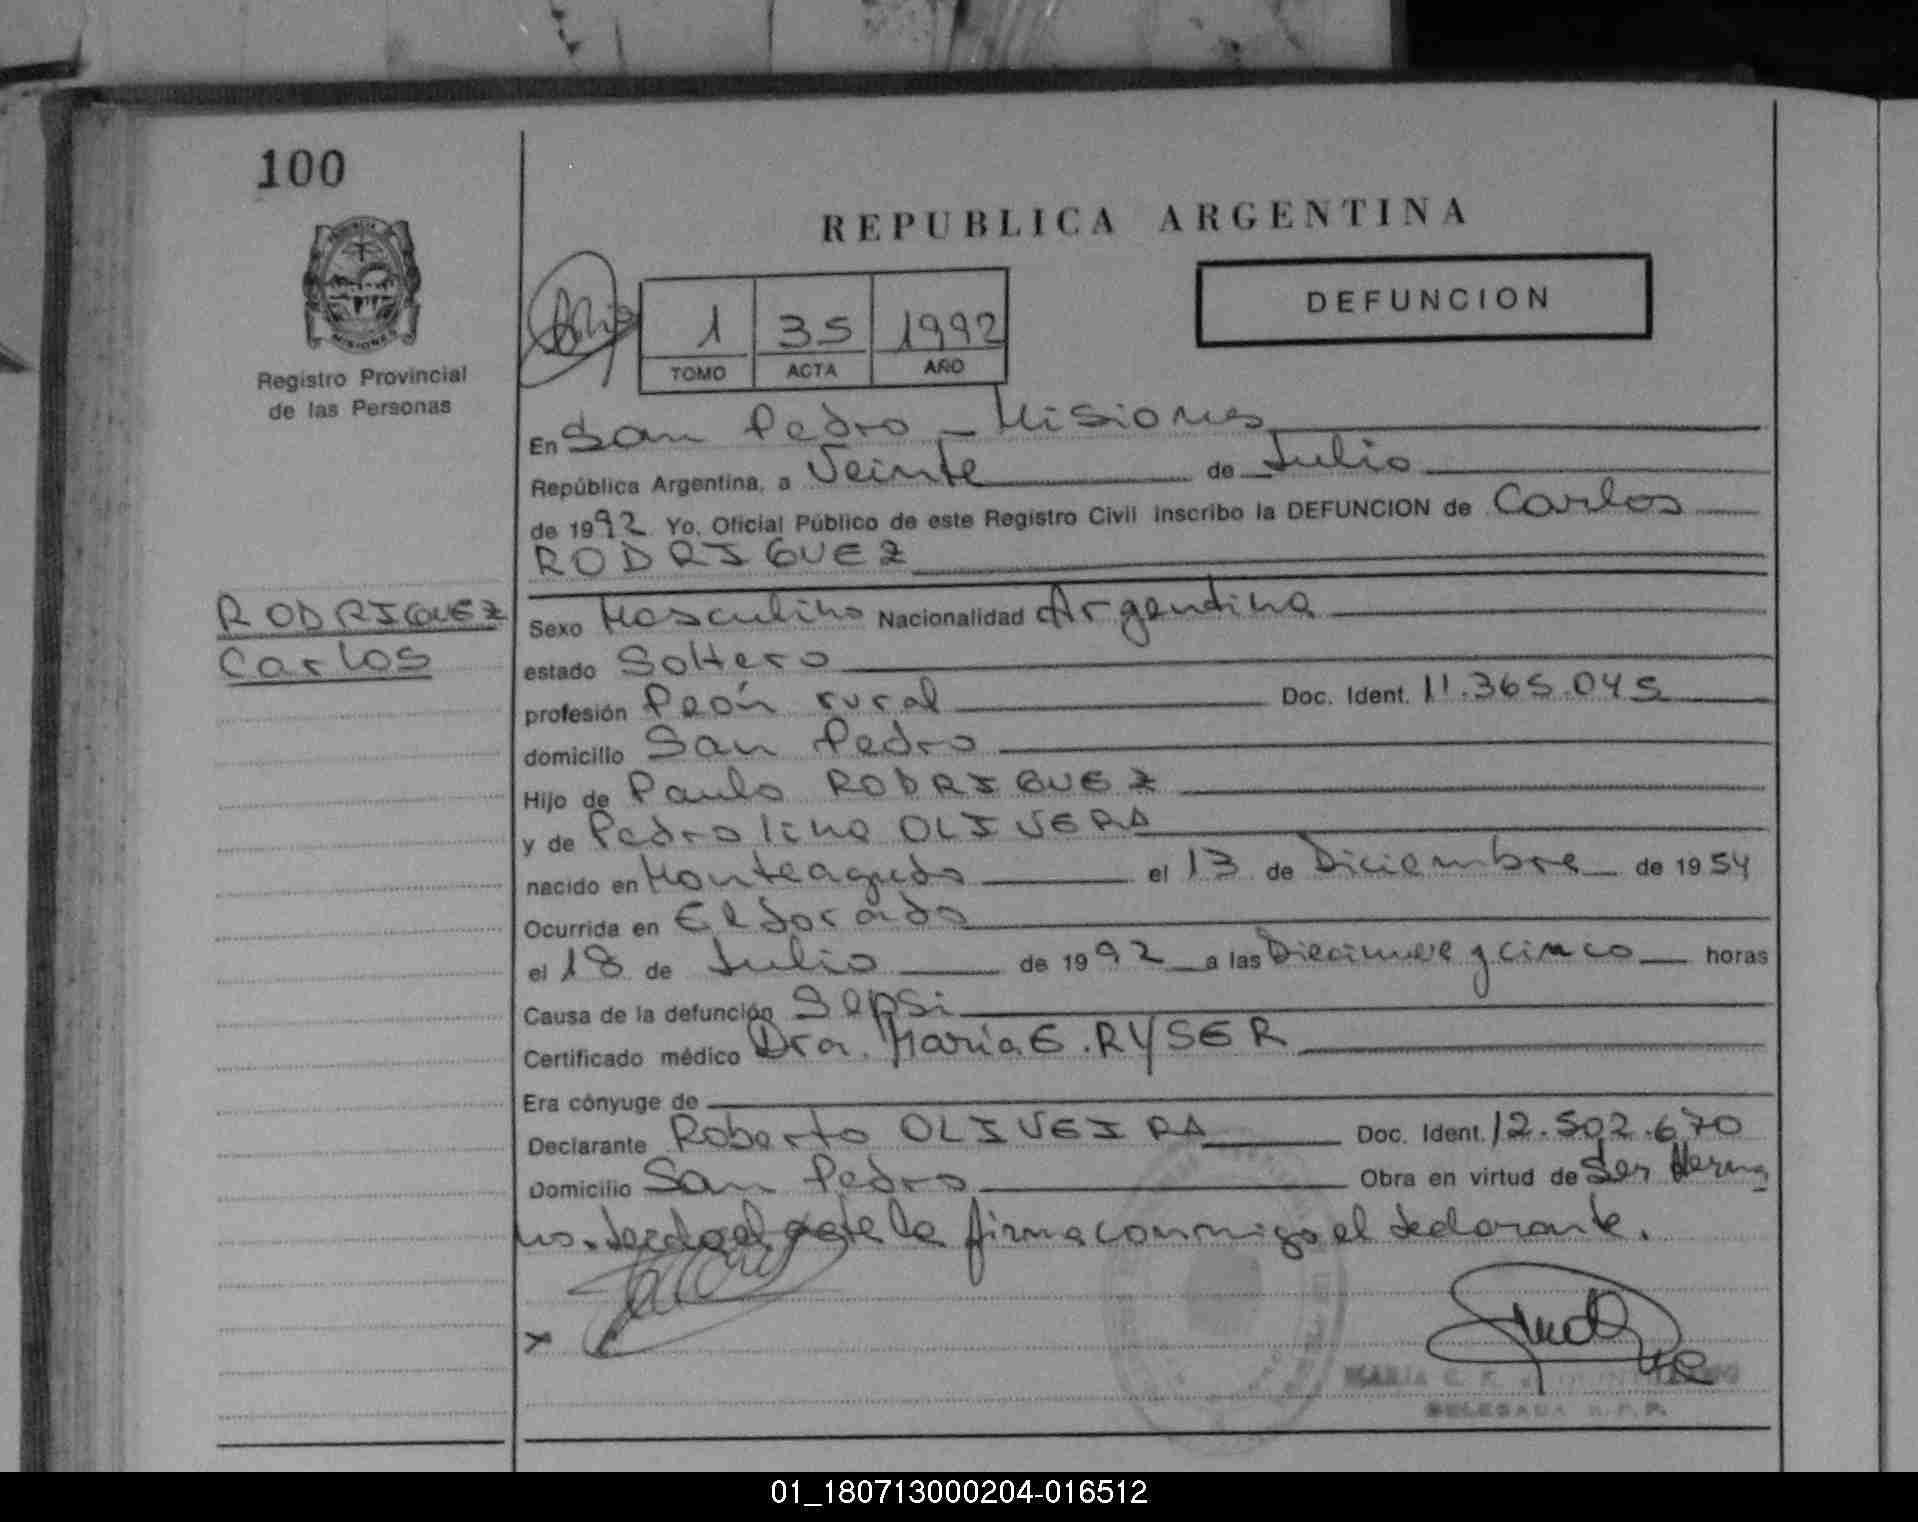 100
REPUBLICA ARGENTINA
DEFUNCION
MISIONES
Registro Provincial
de las Personas
1 35 1992
TOMO ACTA AÑO
En San Pedro - Misiones
República Argentina, a Veinte de Julio
de 1992 Yo, Oficial Público de este Registro Civil inscribo la DEFUNCION de Carlos
RODRIGUEZ
RODRIGUEZ
Carlos
Sexo Masculino Nacionalidad Argentina
estado Soltero
profesión Peón rural Doc. Ident. 11.365.045
domicilio San Pedro
Hijo de Paulo RODRIGUEZ
y de Pedrolina OLIVERA
nacido en Monteagudo el 13 de Diciembre de 1954
Ocurrida en Eldorado
el 18 de Julio de 1992 a las Diecinueve y cinco horas
Causa de la defunción Sepsi
Certificado médico Dra. María E. RYSER
Era cónyuge de
Declarante Roberto OLIVEIRA Doc. Ident. 12.502.670
Domicilio San Pedro Obra en virtud de Ser Herma
no. Leida el acta la firma conmigo el declarante.
x
MARIA
DELEGADA R.P.P.
01_180713000204-016512